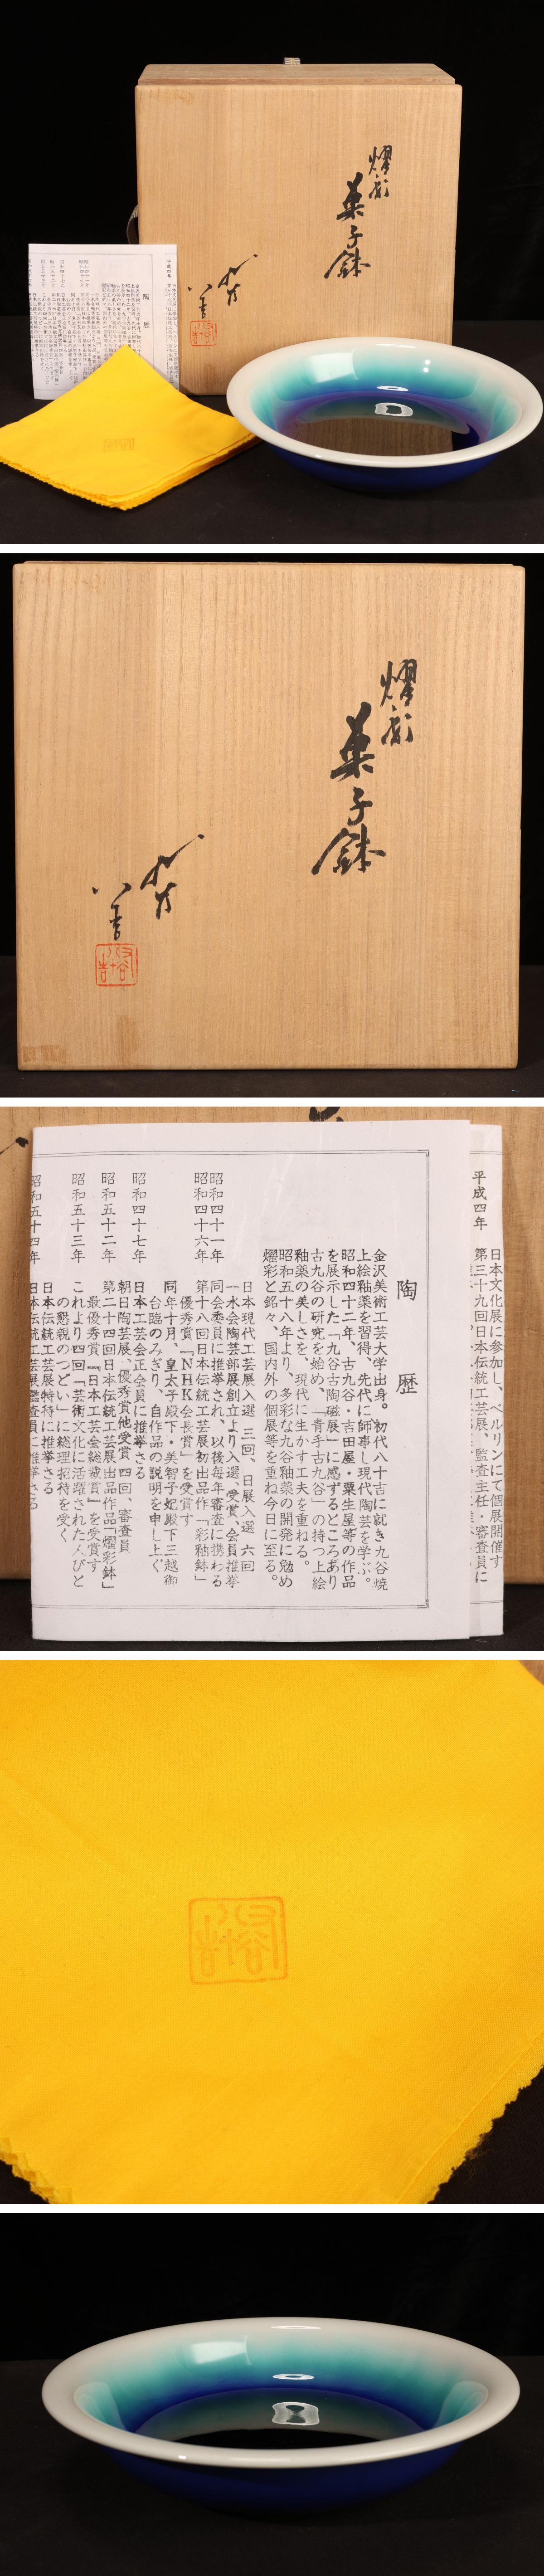 燿彩
菓子鉢
八十吉
陶歴
燿彩
菓子鉢
八十吉
平成四年
日本文化展に参加し、ベルリンにて個展開催す
第三十九回日本伝統工芸展、監査主任・審査員に
陶歴
金沢美術工芸大学出身。初代八十吉に就き九谷焼
上絵釉薬を習得、先代に師事し現代陶芸を学ぶ。
昭和四十二年、古九谷・吉田屋・粟生屋等の作品
を展示した「九谷古陶磁展」に感ずるところあり
古九谷の研究を始め、「青手古九谷」の持つ上絵
釉薬の美しさを、現代に生かす工夫を重ねる。
昭和五十八年より、多彩な九谷釉薬の開発に勉め
燿彩と銘々、国内外の個展等を重ね今日に至る。
日本現代工芸展入選 三回、日展入選 六回
昭和四十一年 一水会陶芸部展創立より入選、受賞、会員推挙
同会委員に推挙され、以後毎年審査に携わる
昭和四十六年 第十八回日本伝統工芸展初出品作「彩釉鉢」
優秀賞『NHK会長賞』を受賞す
同年十月、皇太子殿下・美智子妃殿下三越御
台臨のみぎり、自作品の説明を申し上ぐ
昭和四十七年 日本工芸会正会員に推挙さる
朝日陶芸展、優秀賞他受賞四回、審査員
昭和五十二年 第二十四回日本伝統工芸展出品作品「燿彩鉢」
最優秀賞『日本工芸会総裁賞』を受賞す
昭和五十三年 これより四回「芸術文化に活躍された人びと
の懇親のつどい」に総理招待を受く
日本伝統工芸展特待に推挙さる
昭和五十四年 日本伝統工芸展鑑査員に推挙さる